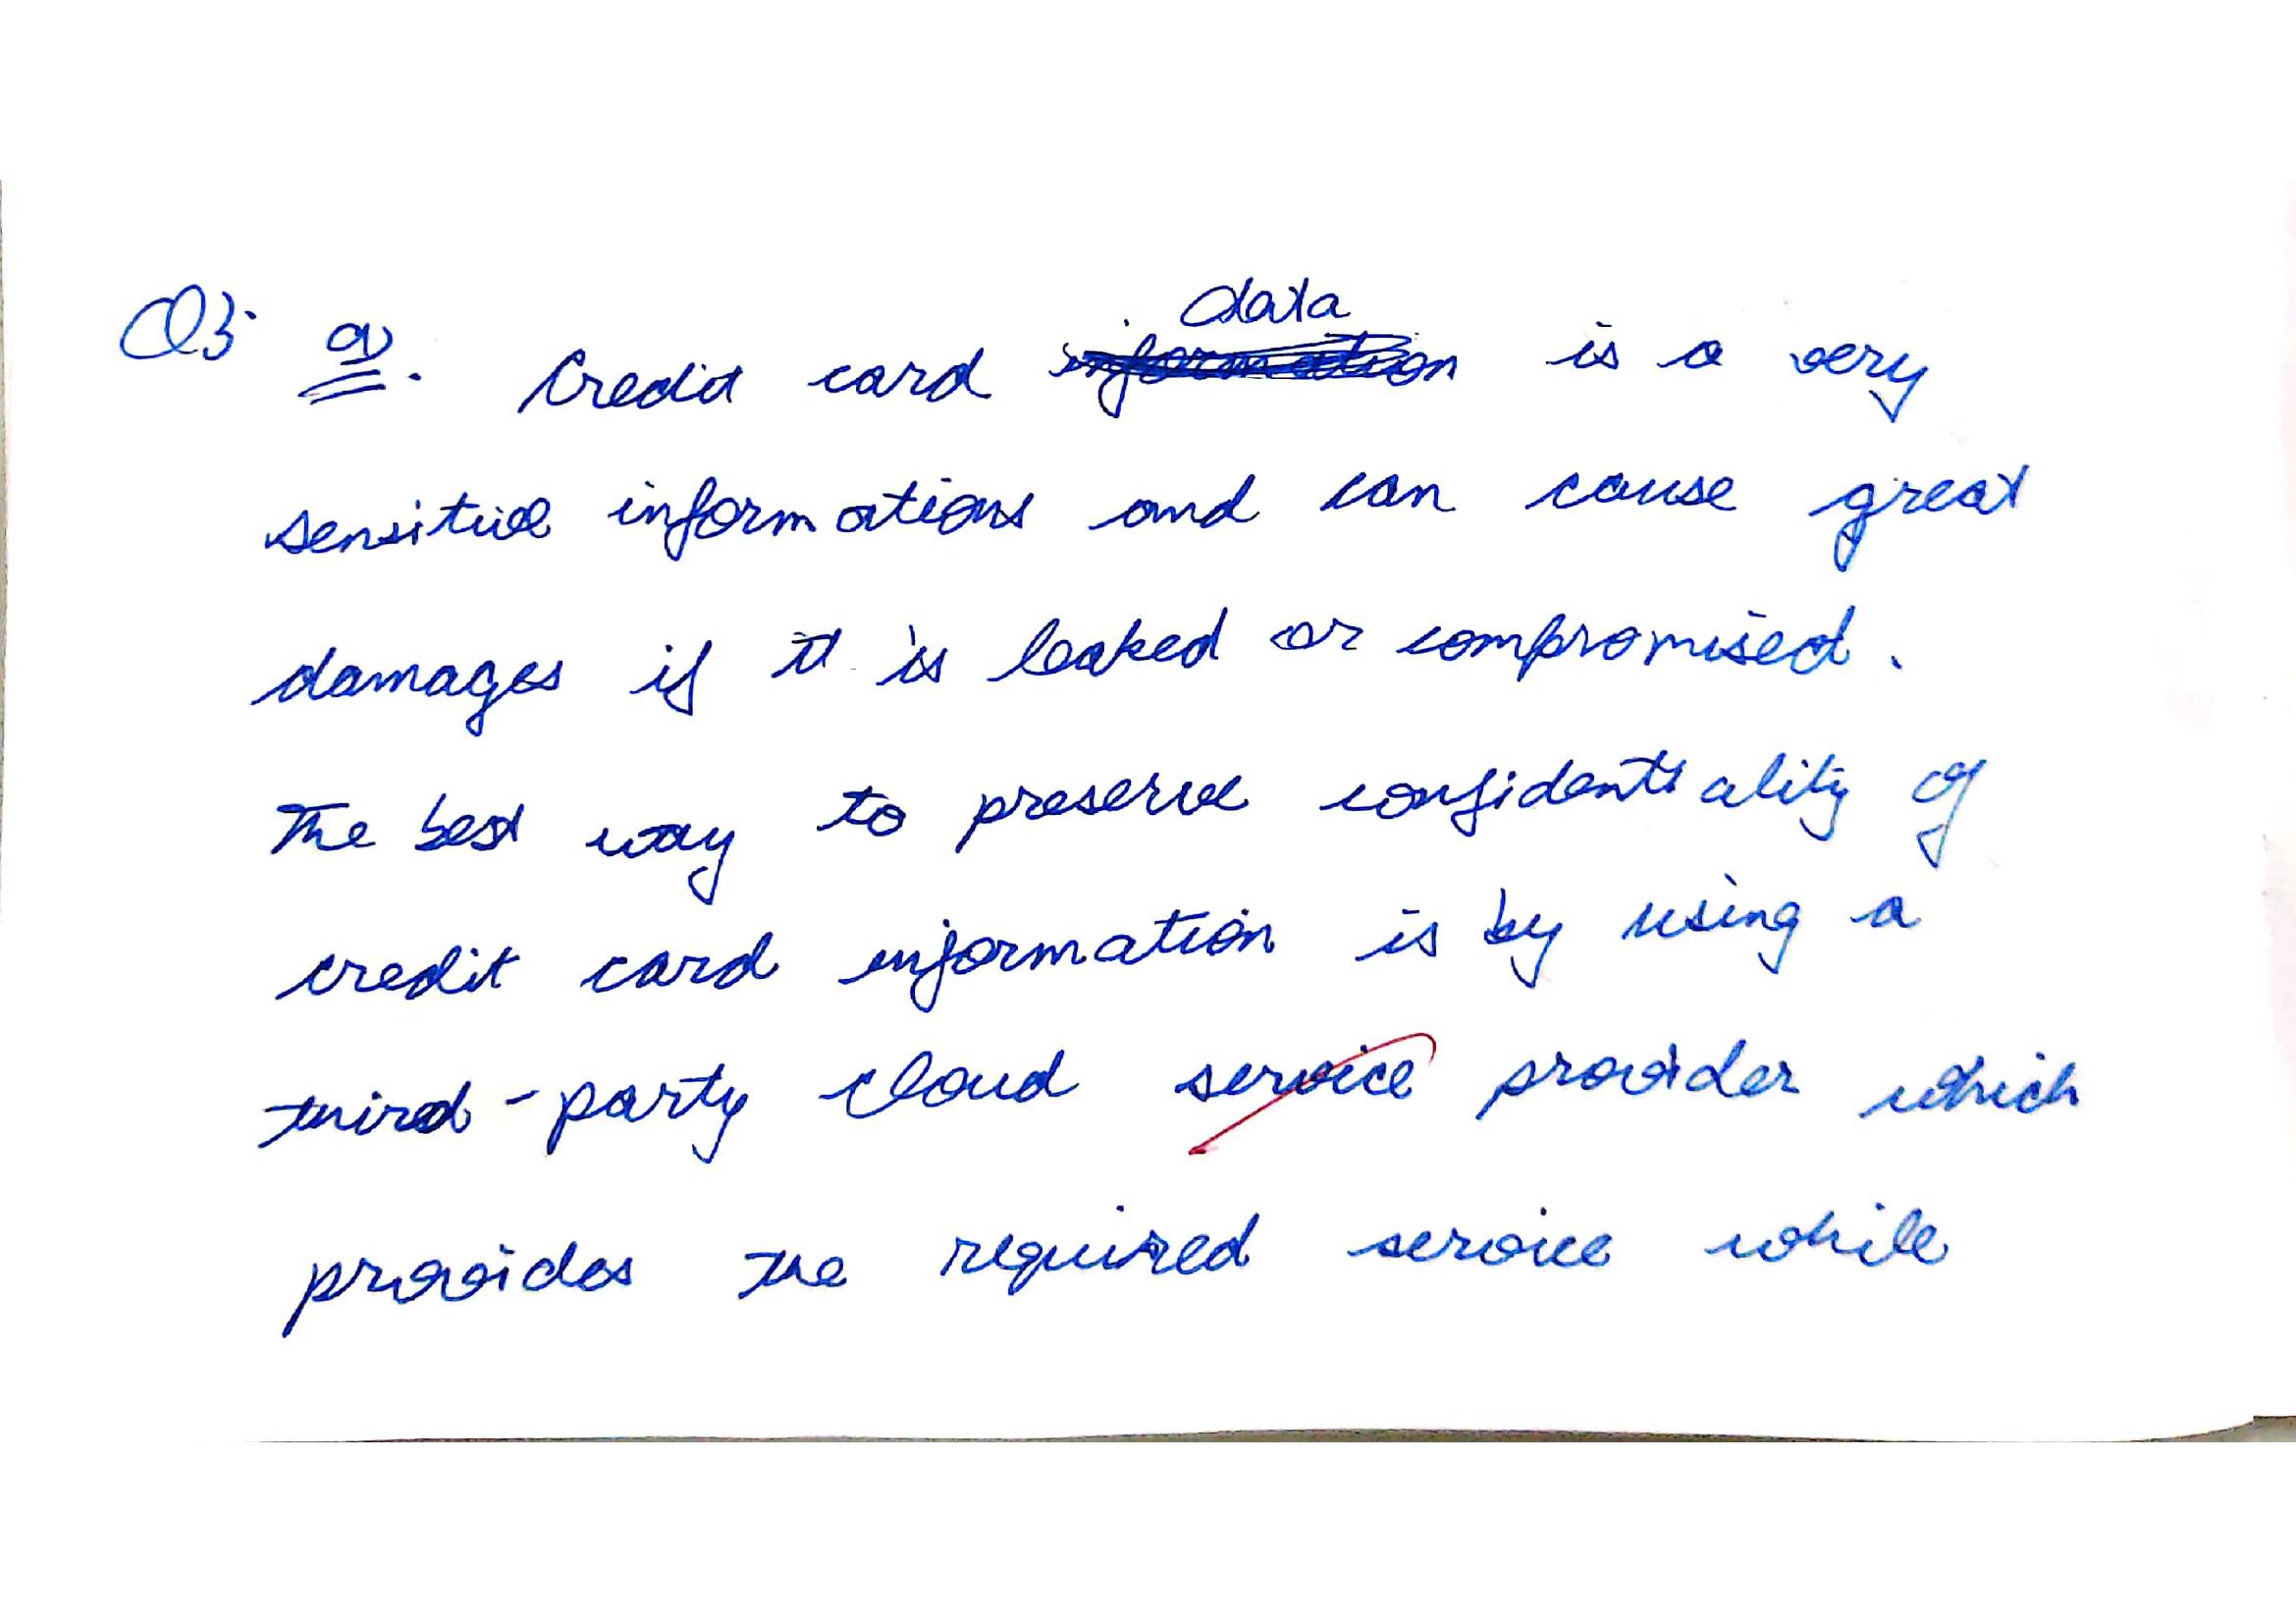 Q3 a. Credit card data is a very
sensitive informations and can cause great
damages if it is leaked or compromised.
The best way to preserve confidentiality of
credit card information is by using a
third-party cloud service provider which
provides the required service while